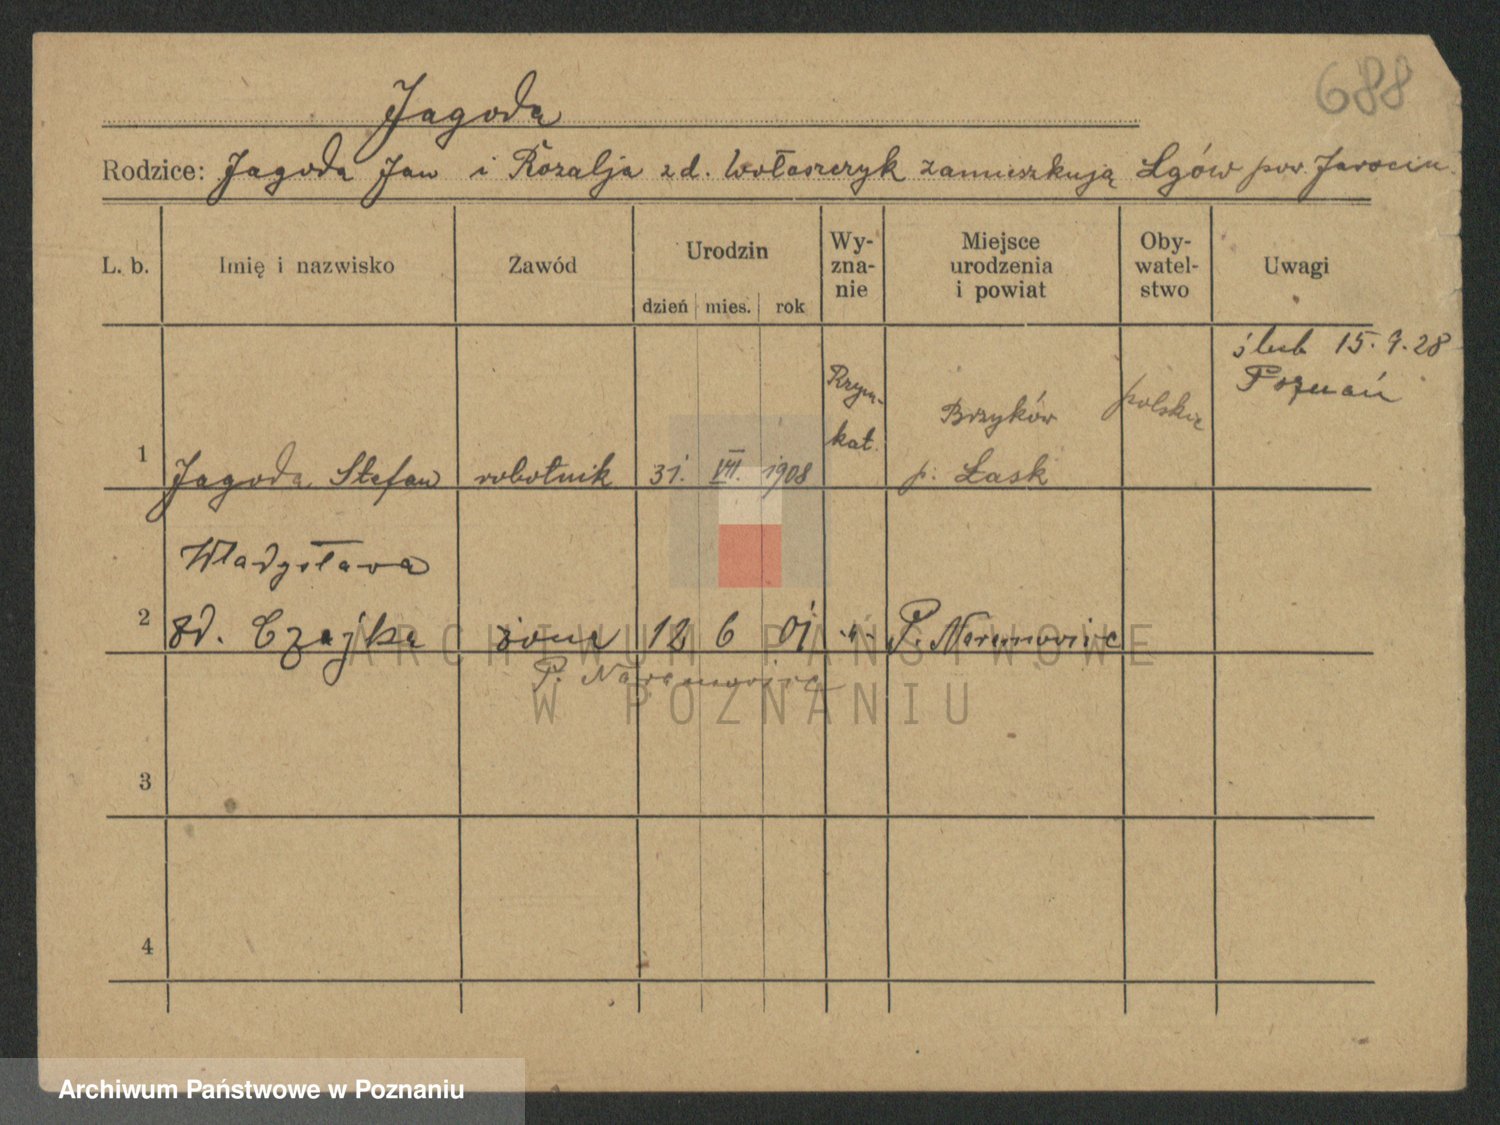 688
Jagoda
Rodzice: Jagoda Jan i Rozalja zd. Wołaszczyk zamieszkują Lgów pow. Jarocin
L. b. Imię i nazwisko Zawód Urodzin dzień mies. rok Wy-zna-nie Miejsce urodzenia i powiat Oby-watel-stwo Uwagi
ślub 15.9.28
Poznań
1 Jagoda Stefan robotnik 31. VII. 1908 Rzym. kat. Brzyków p. Łask polskie
Władysława
2 zd. Czajka żona 12 6 01 -"- P. Naramowice
P. Naramowice
3
4
ARCHIWUM PAŃSTWOWE
W POZNANIU
Archiwum Państwowe w Poznaniu